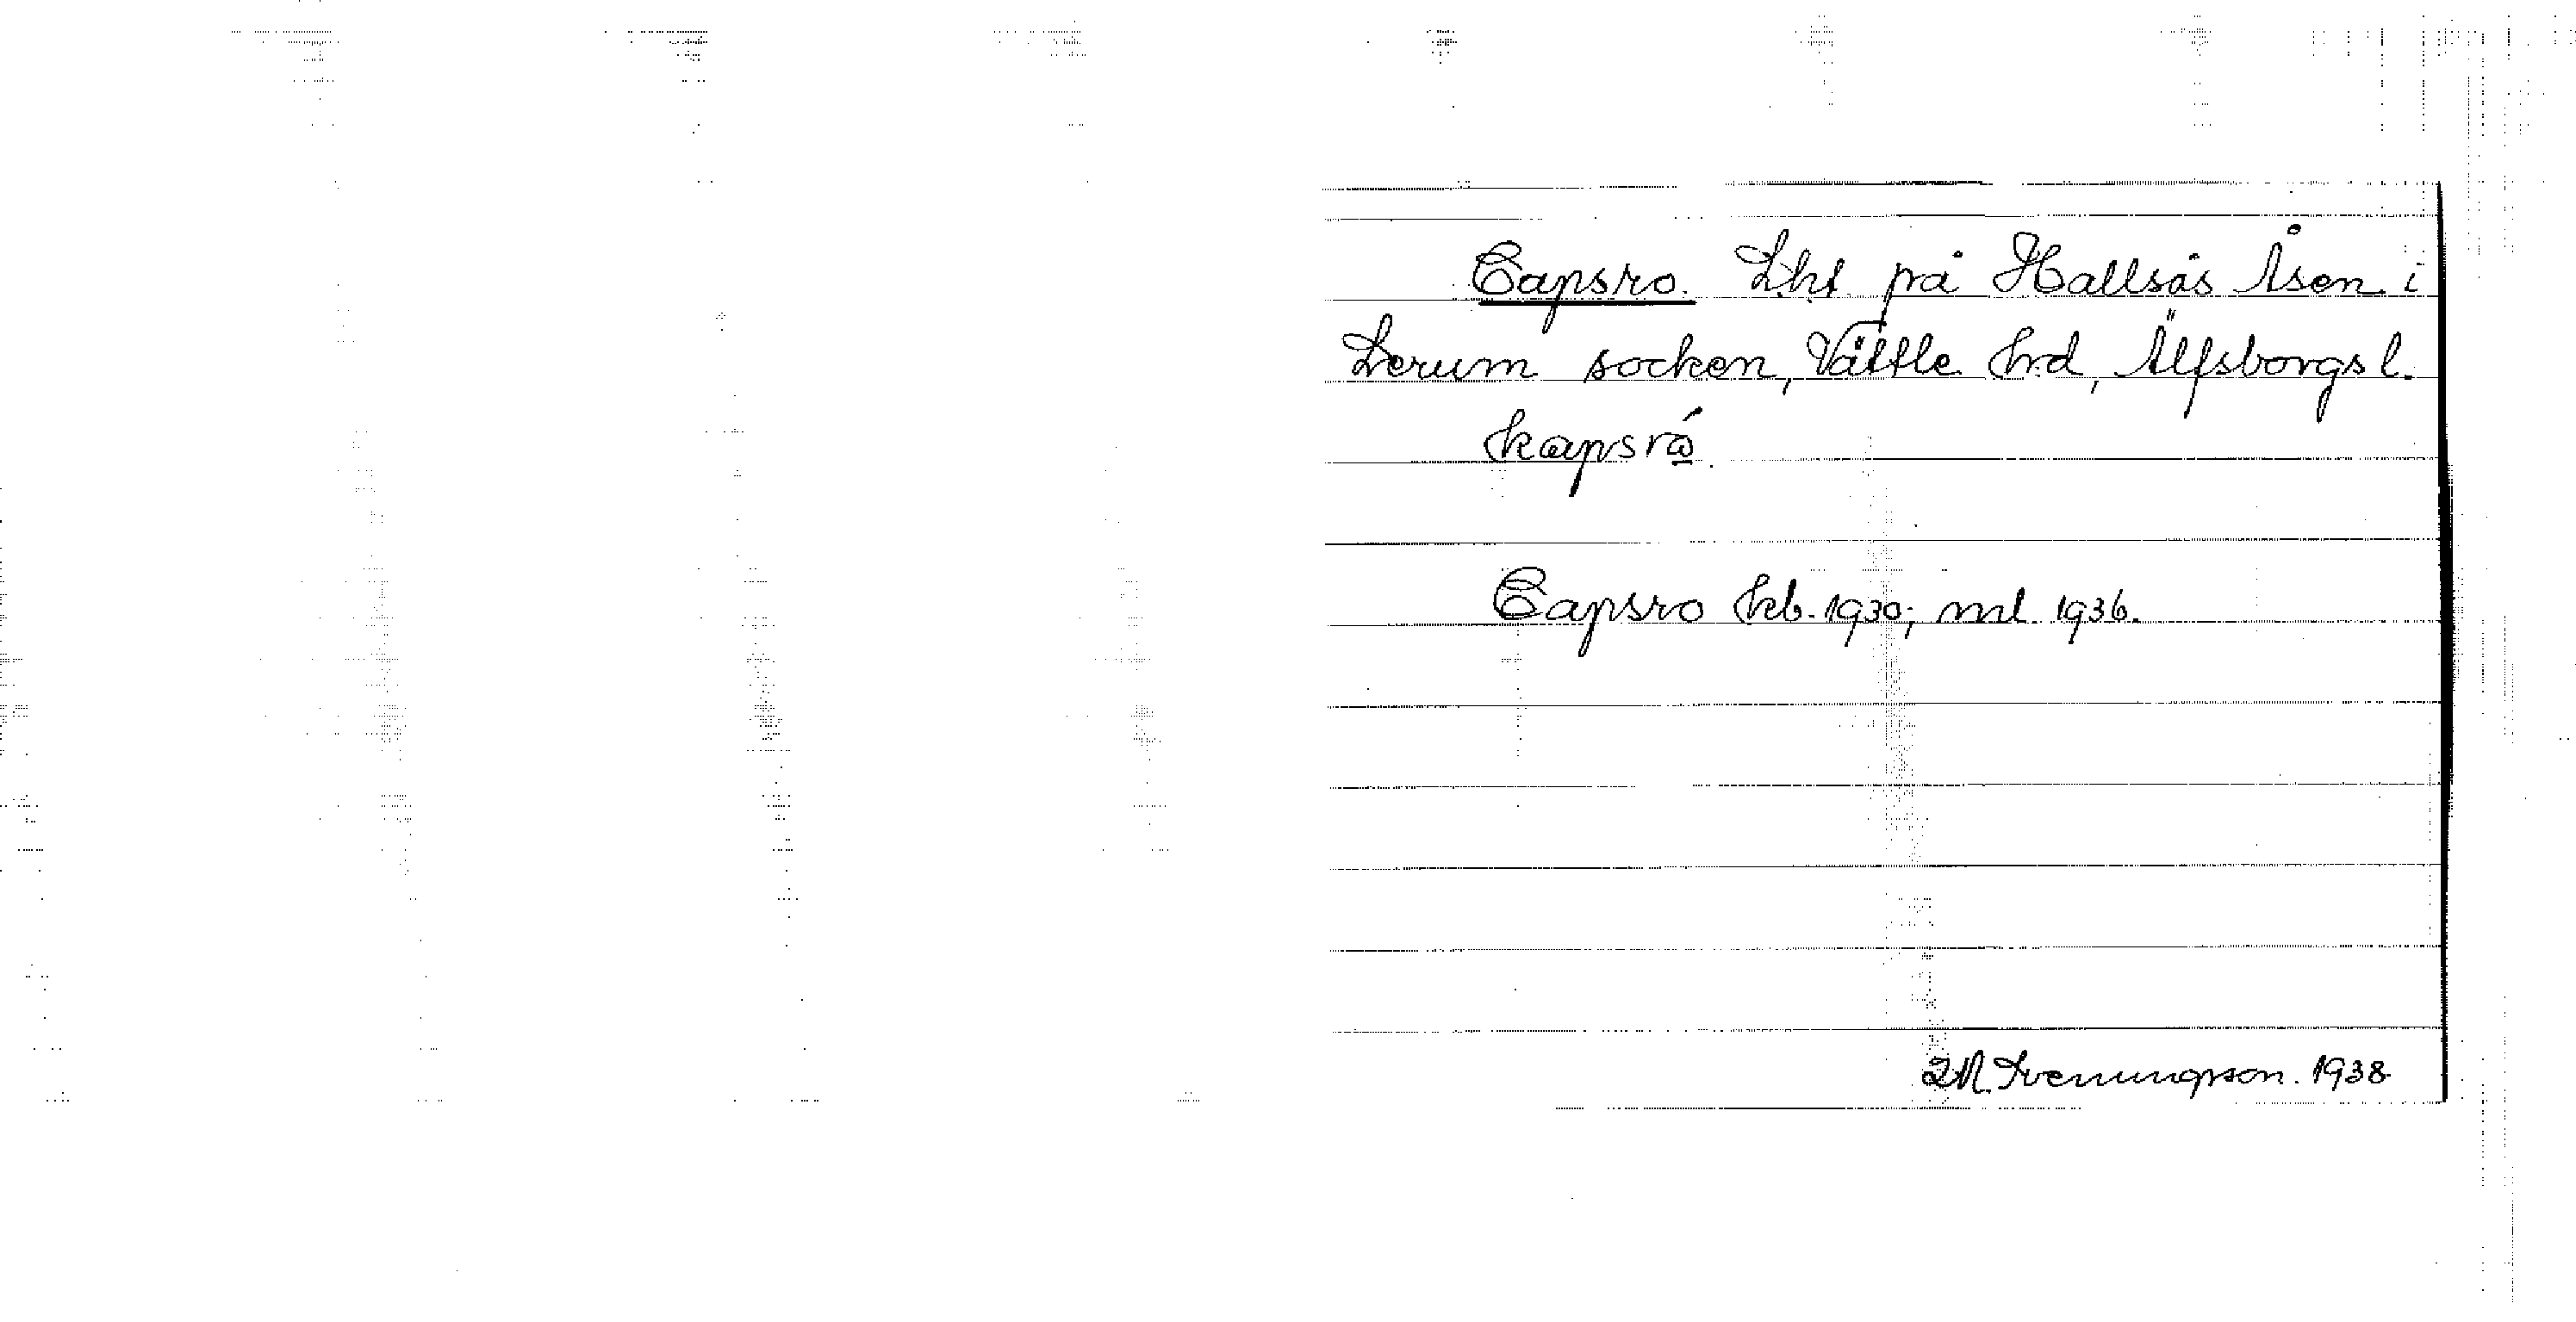 Capsro. Lht. på Hallsås Åsen i
Lerum socken, Vättle hrd, Älfsborgs l.
kapsró
Capsro kb. 1930; ml. 1936.
Svenungson. 1938